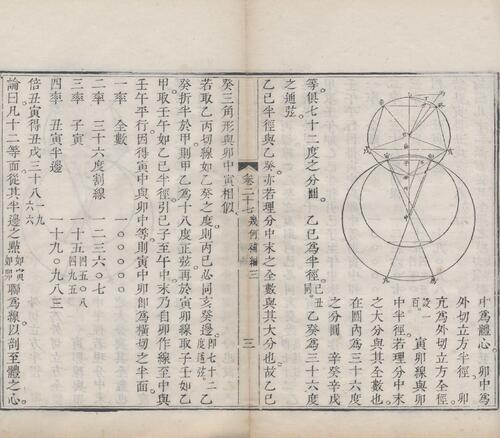 中爲體心。卯中爲
外切立方半徑。卯
亢爲外切立方全徑。
設一百。寅卯線與卯
中半徑若理分中末
之大分與其全數也
在圓內爲三十六度
之分圓 辛癸辛戌
等俱七十二度之分圓。 乙巳爲半徑。巳丑同 乙癸爲三十六度
之通弦。
乙巳半徑與乙癸亦若理分中末之全數與其大分也。故乙巳
卷二十七 幾何補編三 三
癸三角形與卯中寅相似。
若取乙丙切線如乙癸之度則丙巳必同亥癸邊。即七十二度通弦。乙
癸折半於甲則甲乙爲十八度正弦。再於寅卯線取子壬如乙
甲取壬午如乙巳半徑。引巳子至午中末。乃自卯作線至中與
壬午平行。因得寅中與卯中等則寅中卯即爲橫切之半面。
一率 全數 一○○○○○
二率 三十六度割線 一二三六○七
三率 子寅 一十五四五○八
四率 丑寅半邊 一十九○九八三
倍丑寅得丑戌三十八一九六六
論曰凡十二等面從其半邊之點如寅如卯聯爲線以剖至體之心。